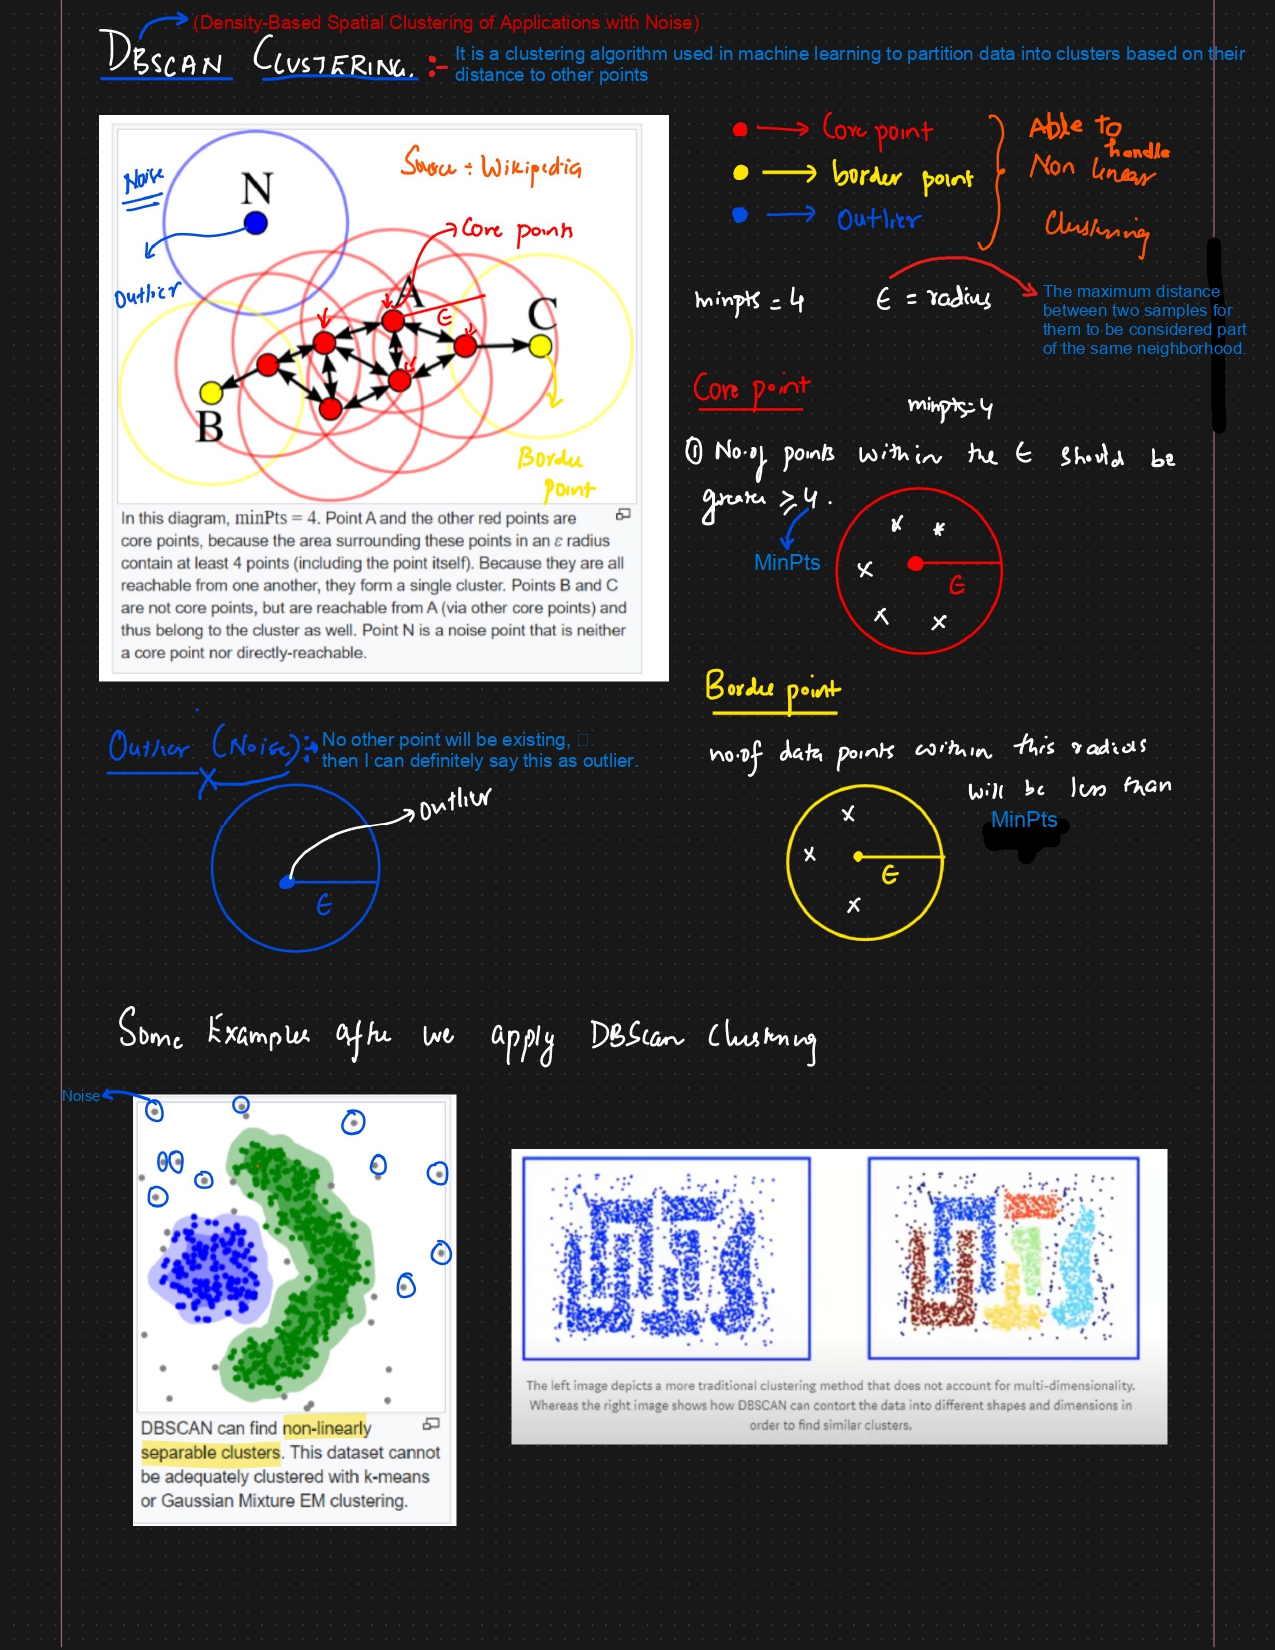 (Density-Based Spatial Clustering of Applications with Noise)
DBSCAN CLUSTERING. :-
It is a clustering algorithm used in machine learning to partition data into clusters based on their
distance to other points
Noise
N
Source : Wikipedia
Core points
Outlier
A
E
C
B
Border
point
In this diagram, minPts = 4. Point A and the other red points are
core points, because the area surrounding these points in an ε radius
contain at least 4 points (including the point itself). Because they are all
reachable from one another, they form a single cluster. Points B and C
are not core points, but are reachable from A (via other core points) and
thus belong to the cluster as well. Point N is a noise point that is neither
a core point nor directly-reachable.
Core point
border point
Outlier
Able to
handle
Non linear
Clustering
minpts = 4
E = radius
The maximum distance
between two samples for
them to be considered part
of the same neighborhood.
Core point
minpts=4
① No.of points within the E should be
greater ≥ 4.
MinPts
E
Border point
no.of data points within this radius
will be less than
MinPts
E
Outlier (Noise):
No other point will be existing,
then I can definitely say this as outlier.
outlier
E
Some Examples after we apply DBScan Clustering
Noise
DBSCAN can find non-linearly
separable clusters. This dataset cannot
be adequately clustered with k-means
or Gaussian Mixture EM clustering.
The left image depicts a more traditional clustering method that does not account for multi-dimensionality.
Whereas the right image shows how DBSCAN can contort the data into different shapes and dimensions in
order to find similar clusters.